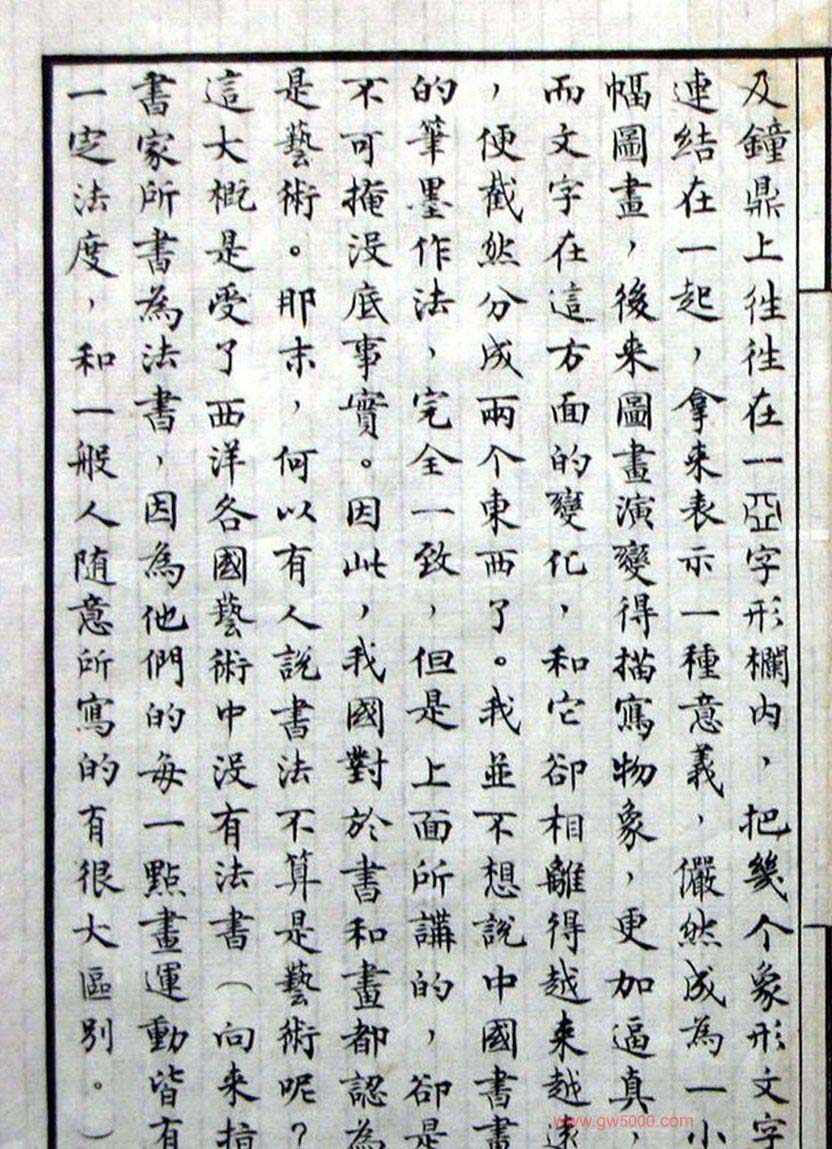 及鐘鼎上徃徃在一亞字形欄内，把幾个象形文字
連结在一起，拿来表示一種意義，儼然成為一小
幅圖畫，後来圖畫演變得描寫物象，更加逼真，
而文字在這方面的變化，和它卻相離得越来越遠
，便截然分成兩个東西了。我並不想說中國書畫
的筆墨作法，完全一致，但是上面所講的，卻是
不可掩没底事實。因此，我國對於書和畫都認為
是藝術。那末，何以有人説書法不算是藝術呢？
這大概是受了西洋各國藝術中没有法書（向来指
書家所書為法書，因為他們的每一點畫運動皆有
一定法度，和一般人随意所寫的有很大區别。）
www.gw5000.com